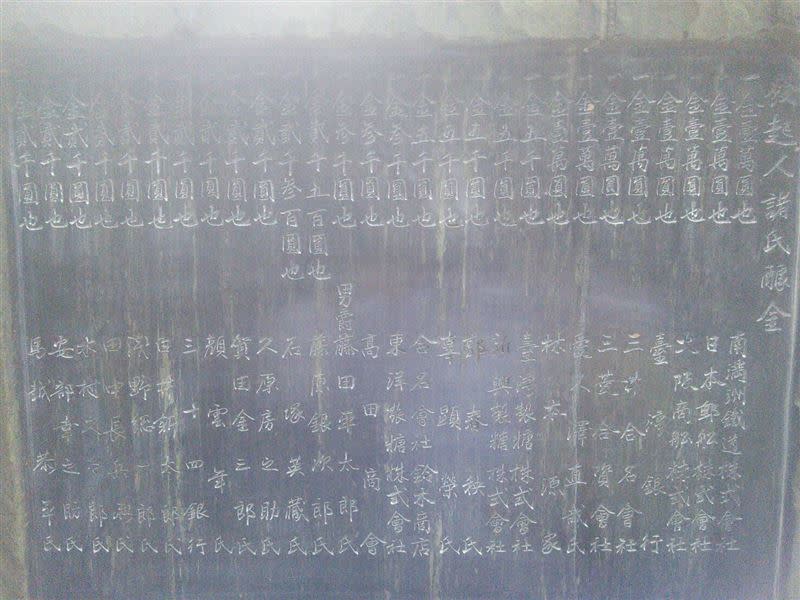 發起人諸氏醵金
一金壹萬圓也 南滿洲鐵道株式會社
一金壹萬圓也 日本郵船株式會社
一金壹萬圓也 大阪商船株式會社
一金壹萬圓也 臺灣銀行
一金壹萬圓也 三井合名會社
一金壹萬圓也 三菱合資會社
一金壹萬圓也 愛久澤直哉氏
一金壹萬圓也 林本源家
一金五千圓也 臺灣製糖株式會社
一金五千圓也 新興製糖株式會社
一金五千圓也 郭春秧氏
一金五千圓也 辜顯榮氏
一金五千圓也 合名會社鈴木商店
一金參千圓也 東洋製糖株式會社
一金參千圓也 高田商會
一金參千圓也 男爵藤田平太郎氏
一金貳千五百圓也 藤原銀次郎氏
一金貳千參百圓也 石塚英藏氏
一金貳千圓也 久原房之助氏
一金貳千圓也 賀田金三郎氏
一金貳千圓也 顏雲年氏
一金貳千圓也 三十四銀行
一金貳千圓也 太郎氏
一金貳千圓也 淺野總一郎氏
一金貳千圓也 田中長兵衛氏
一金貳千圓也 木村久太郎氏
一金貳千圓也 安部幸之助氏
一金貳千圓也 馬越恭平氏